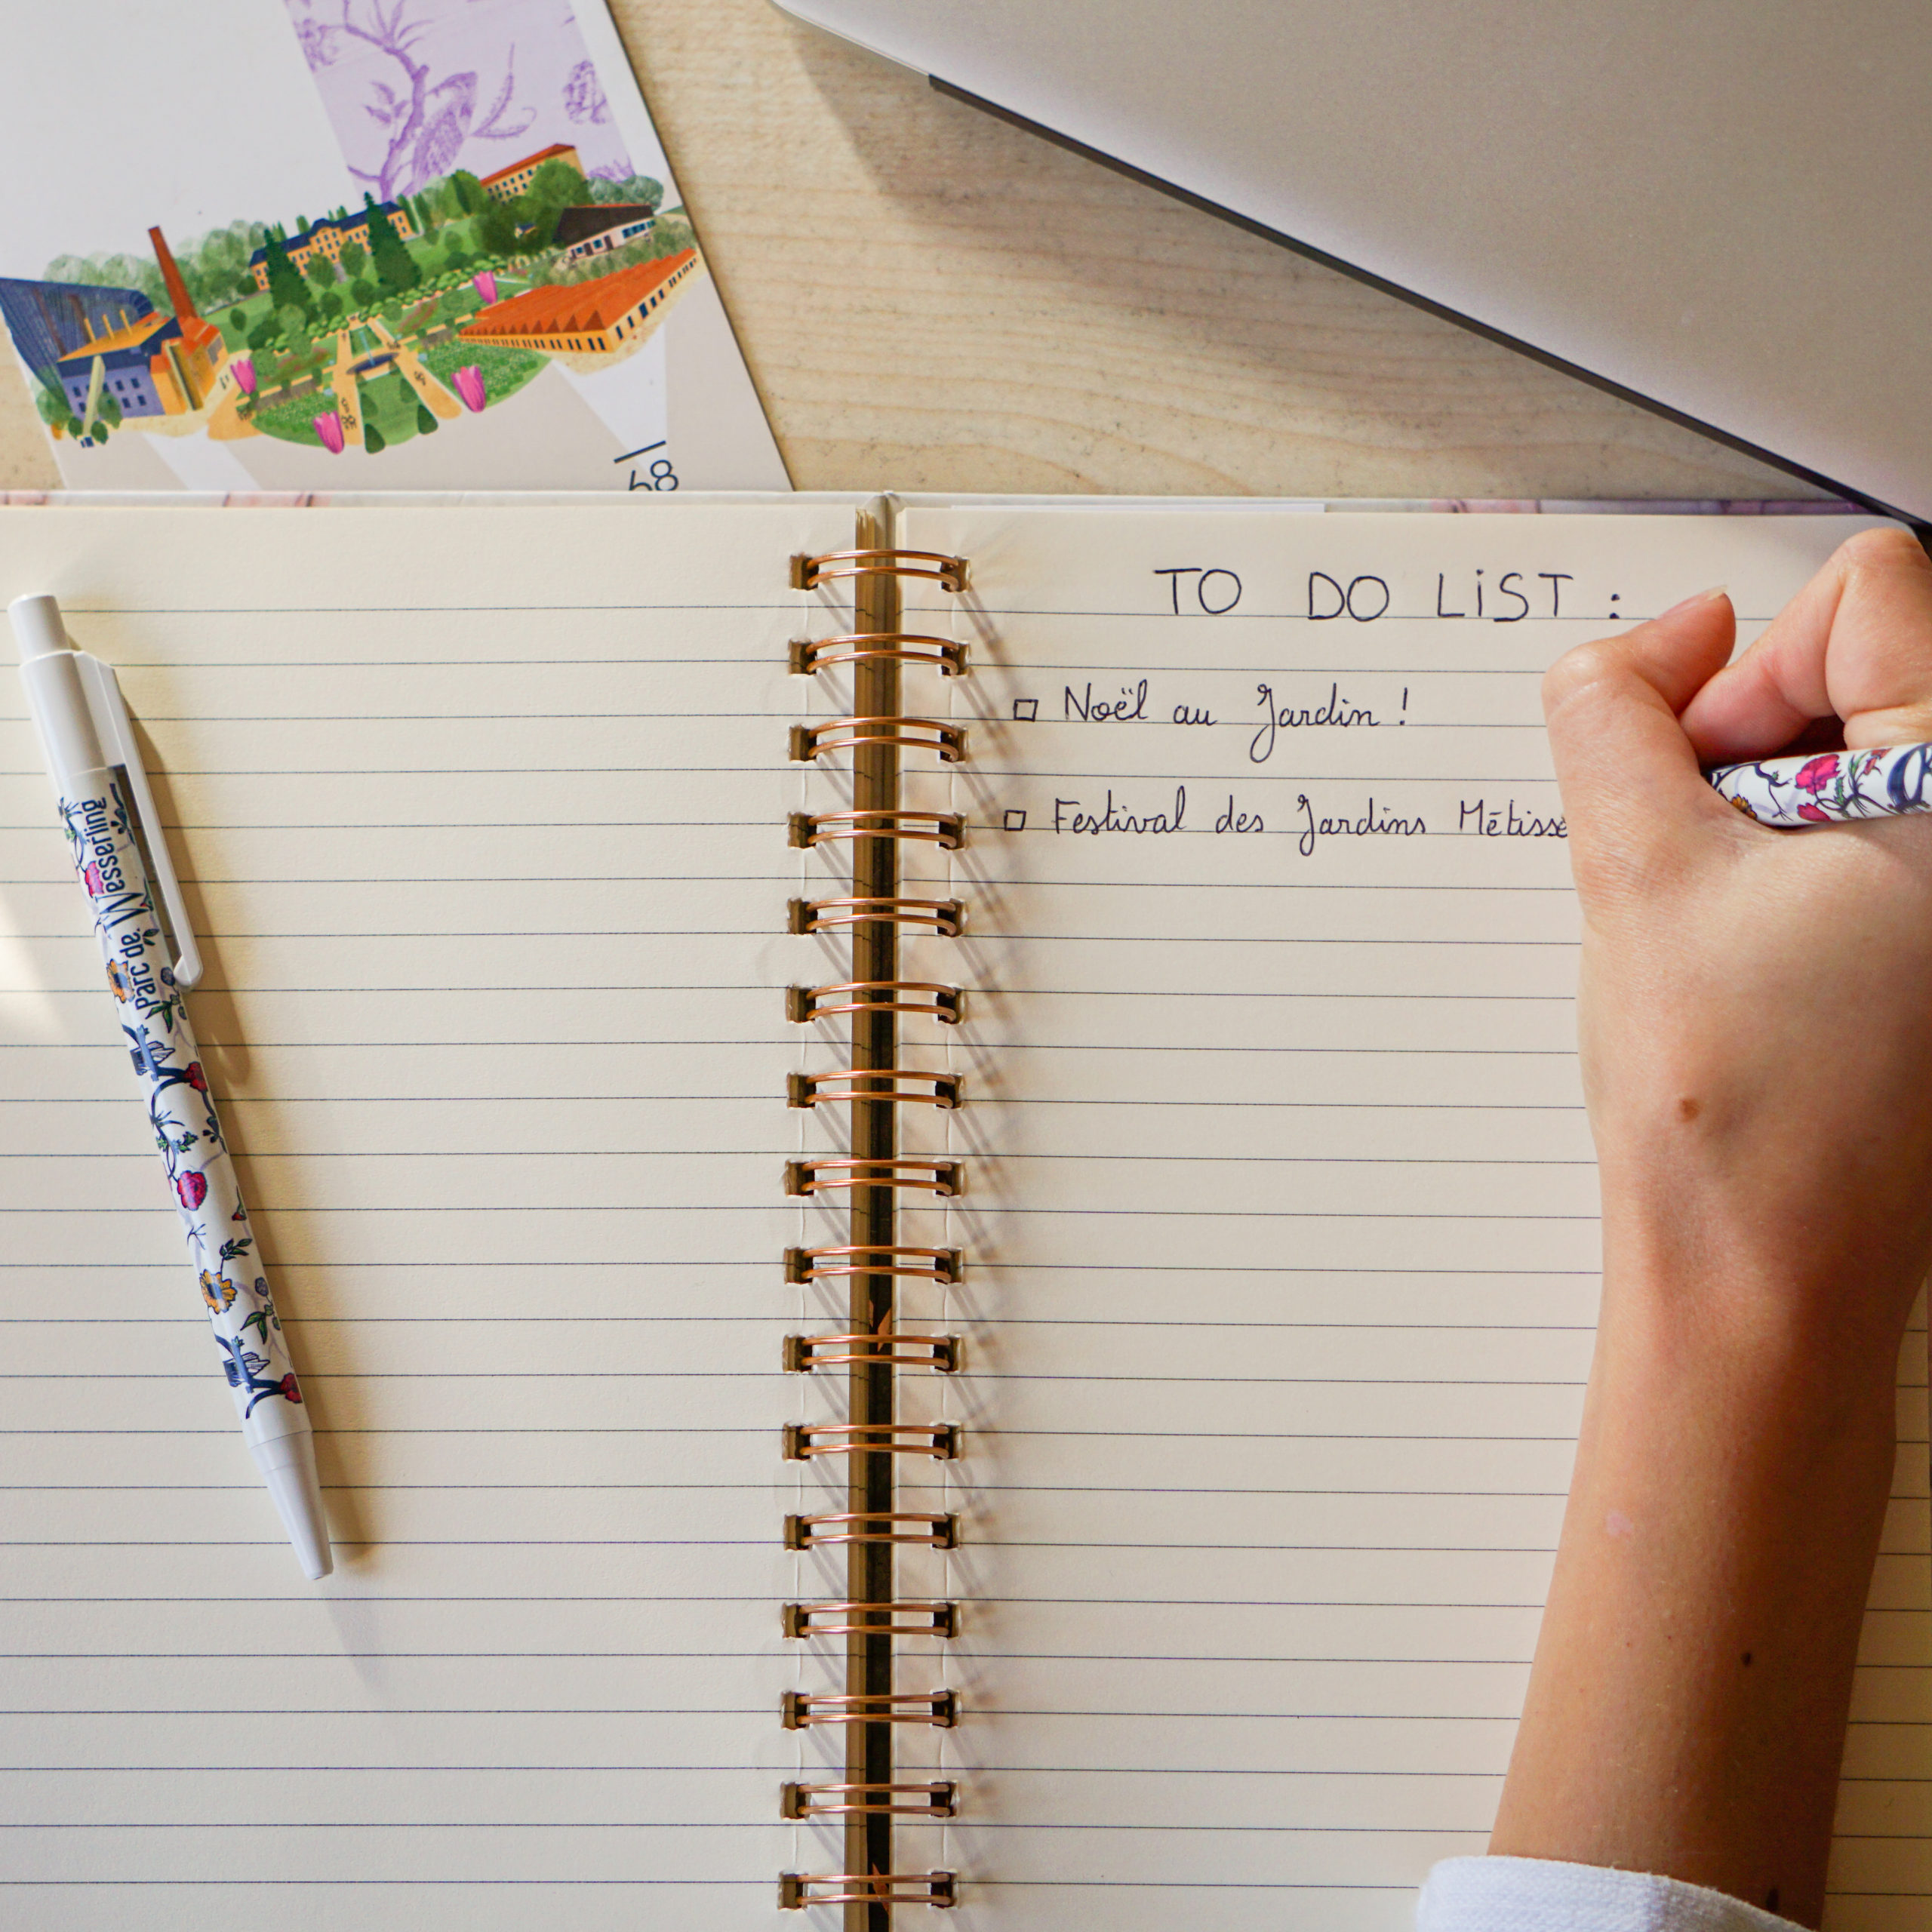 68
TO DO LiST :
□ Noël au Jardin !
□ Festival des Jardins Métisse
Parc de Wesserling